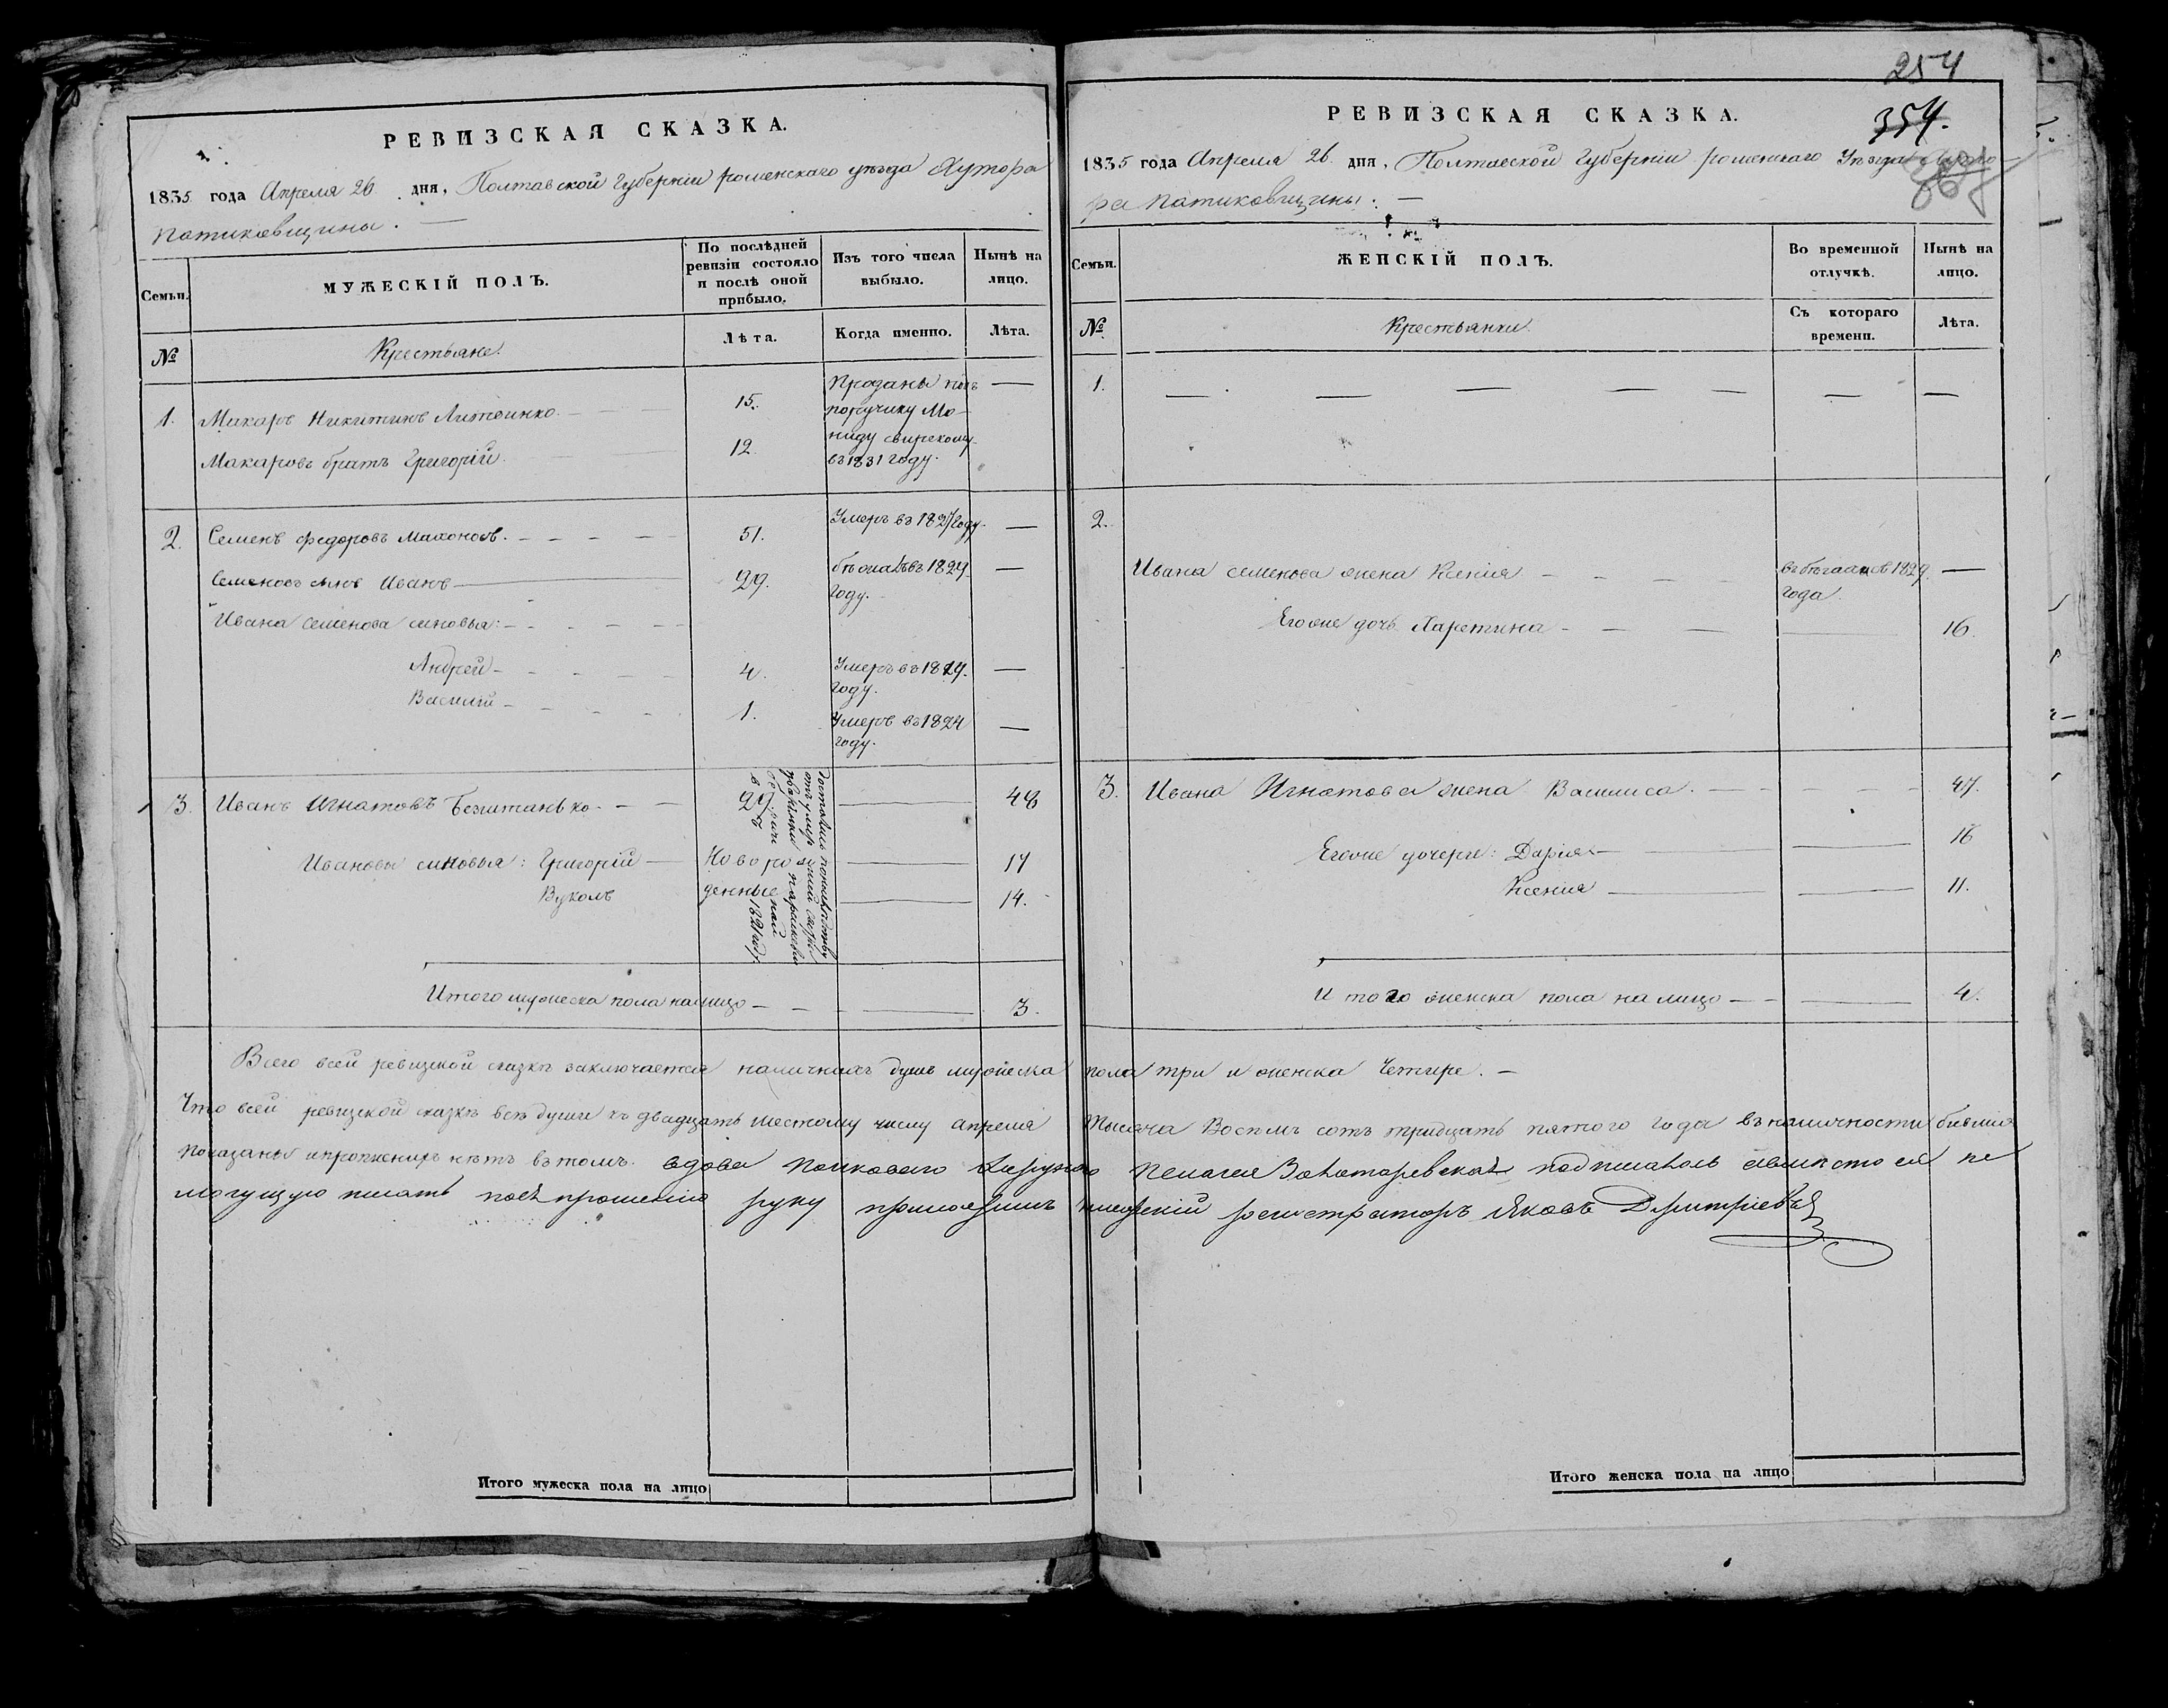 254
РЕВИЗСКАЯ СКАЗКА.
1835 года Апреля 26 дня, Полтавской Губернiи роменскаго уѣзда Хутора
Патиковщины.
Семьи.
МУЖЕСКІЙ ПОЛЪ.
По послѣдней ревизіи состояло и послѣ оной прибыло.
Изъ того числа выбыло.
Нынѣ на лицо.
№
Крестьяне.
Лѣта.
Когда именно.
Лѣта.
1. Макаръ Никитинъ Литвинко 15.
Макаровъ братъ Григорій 12
Проданы подъ
поручику
въ 1831 году.
2. Семенъ Федоровъ Махоновъ. 51. Умеръ въ 1827 году. —
Семеновъ сынъ Иванъ 29. бѣжалъ въ 1829 году. —
Ивана Семенова сыновья:
Андрей 4. Умеръ въ 1829 году. —
Василій 1. Умеръ въ 1824 году. —
3. Иванъ Игнатовъ Безштанько 48
Ивановы сыновья: Григорій Новорож 17
Вуколъ денные 14.
Итого мужеска пола налицо 3.
354.
РЕВИЗСКАЯ СКАЗКА.
1835 года Апреля 26 дня, Полтавской Губерніи роменскаго Уѣзда Хуто
ра Патиковщины.
Семьи.
ЖЕНСКІЙ ПОЛЪ.
Во временной отлучкѣ.
Нынѣ на лицо.
№
Крестьянки.
Съ котораго времени.
Лѣта.
1.
2.
Ивана Семенова жена Ксенія въ бѣгахъ съ 1829 года. —
Егоже дочь 16.
3. Ивана Игнатова жена Василиса. 47.
Егоже дочери: Дарія 16
Ксенія 11.
Итого женска пола на лицо 4.
Всего всей ревизской сказкѣ заключается наличныхъ душъ мужеска пола три и женска четыре.
Что всей ревизской сказкѣ всѣ души къ двадцать шестому числу апреля Тысяча Восемъ сотъ тридцать пятого года въ наличности бывшія
показаны и прописныхъ нѣтъ въ томъ. вдова Пелагея подписалась а вместо ея не
могущую писать по прошенію руку регистраторъ Яковъ Дмитріевъ
Итого мужеска пола на лицо
Итого женска пола на лицо